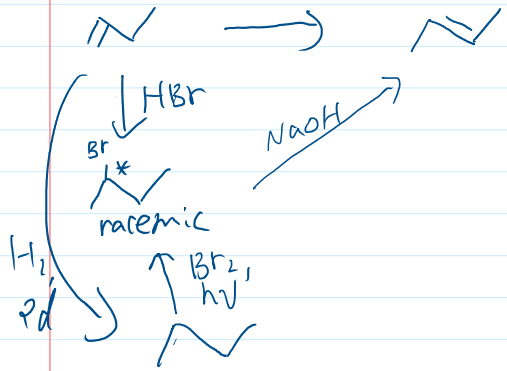 HBr
Br
*
NaOH
racemic
H2,
Pd
Br2,
hν